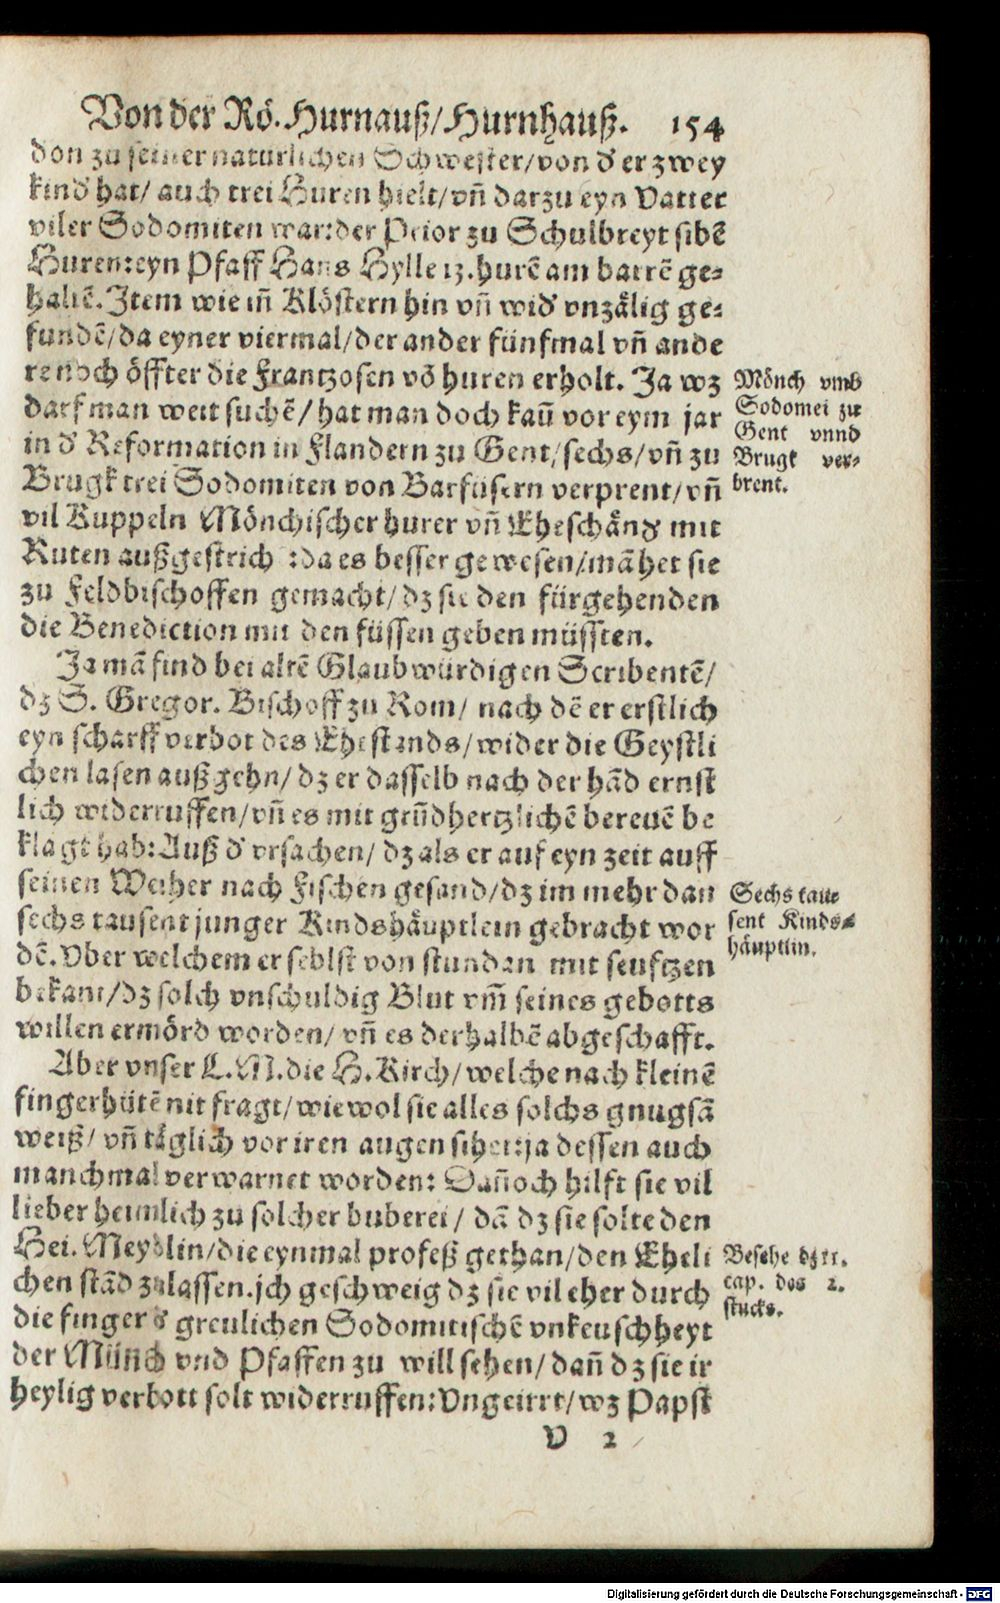 Von der Rö. Hurnauß/Hurnhauß. 154
don zu seiner naturlichen Schwester/von d' er zwey
kind hat/ auch trei Huren hielt/vñ darzu eyn Vatter
viler Sodomiten war:der Prior zu Schulbreyt sibē
Huren:eyn Pfaff Hans Hylle 13.hurē am barrē ge-
haltē.Item wie iñ Klöstern hin vñ wid' vnzälig ge-
fundē/da eyner viermal/der ander fünfmal vñ ande
re noch öffter die Frantzosen vō huren erholt. Ja wz
darf man weit suchē/hat man doch kaū vor eym jar
in d' Reformation in Flandern zu Gent/sechs/vñ zu
Brugk trei Sodomiten von Barfüsern verprent/vñ
vil Kuppeln Mönchischer hurer vñ Eheschänd' mit
Ruten außgestrich :da es besser gewesen/mā het sie
zu Feldbischoffen gemacht/dz sie den fürgehenden
die Benediction mit den füssen geben müssten.
Mönch vmb
Sodomei zu
Gent vnnd
Brugk ver-
brent.
Ja mā find bei altē Glaubwürdigen Scribentē/
dz S. Gregor. Bischoff zu Rom/ nach dē er erstlich
eyn scharff verbot des Ehestands/wider die Geystli
chen lasen außgehn/dz er dasselb nach der hād ernst
lich widerruffen/vñ es mit grūdhertzlichē bereuē be
klagt hab:Auß d' vrsachen/ dz als er auf eyn zeit auff
seinen Weiher nach Fischen gesand/dz im mehr dan
sechs tausent junger Kindshäuptlein gebracht wor
dē.Vber welchem er seblst von stundan mit seuftzen
bekant/dz solch vnschuldig Blut vm̄ seines gebotts
willen ermörd worden/ vñ es derhalbē abgeschafft.
Sechs tau-
sent Kinds-
häuptlin.
Aber vnser L.M.die H.Kirch/welche nach kleinē
fingerhütē nit fragt/wiewol sie alles solchs gnugsā
weiß/ vñ täglich vor iren augen sihet:ja dessen auch
manchmal verwarnet worden: Dañoch hilft sie vil
lieber heimlich zu solcher buberei/ dā dz sie solte den
Hei. Meydlin/die eynmal profeß gethan/den Eheli
chen stād zulassen.ich geschweig dz sie vil eher durch
die finger d' greulichen Sodomitischē vnkeuschheyt
der Münch vnd Pfaffen zu will sehen/dañ dz sie ir
heylig verbott solt widerruffen:Vngeirrt/wz Papst
Besehe dz 11.
cap. des 2.
stucks.
V 2
Digitalisierung gefördert durch die Deutsche Forschungsgemeinschaft - DFG